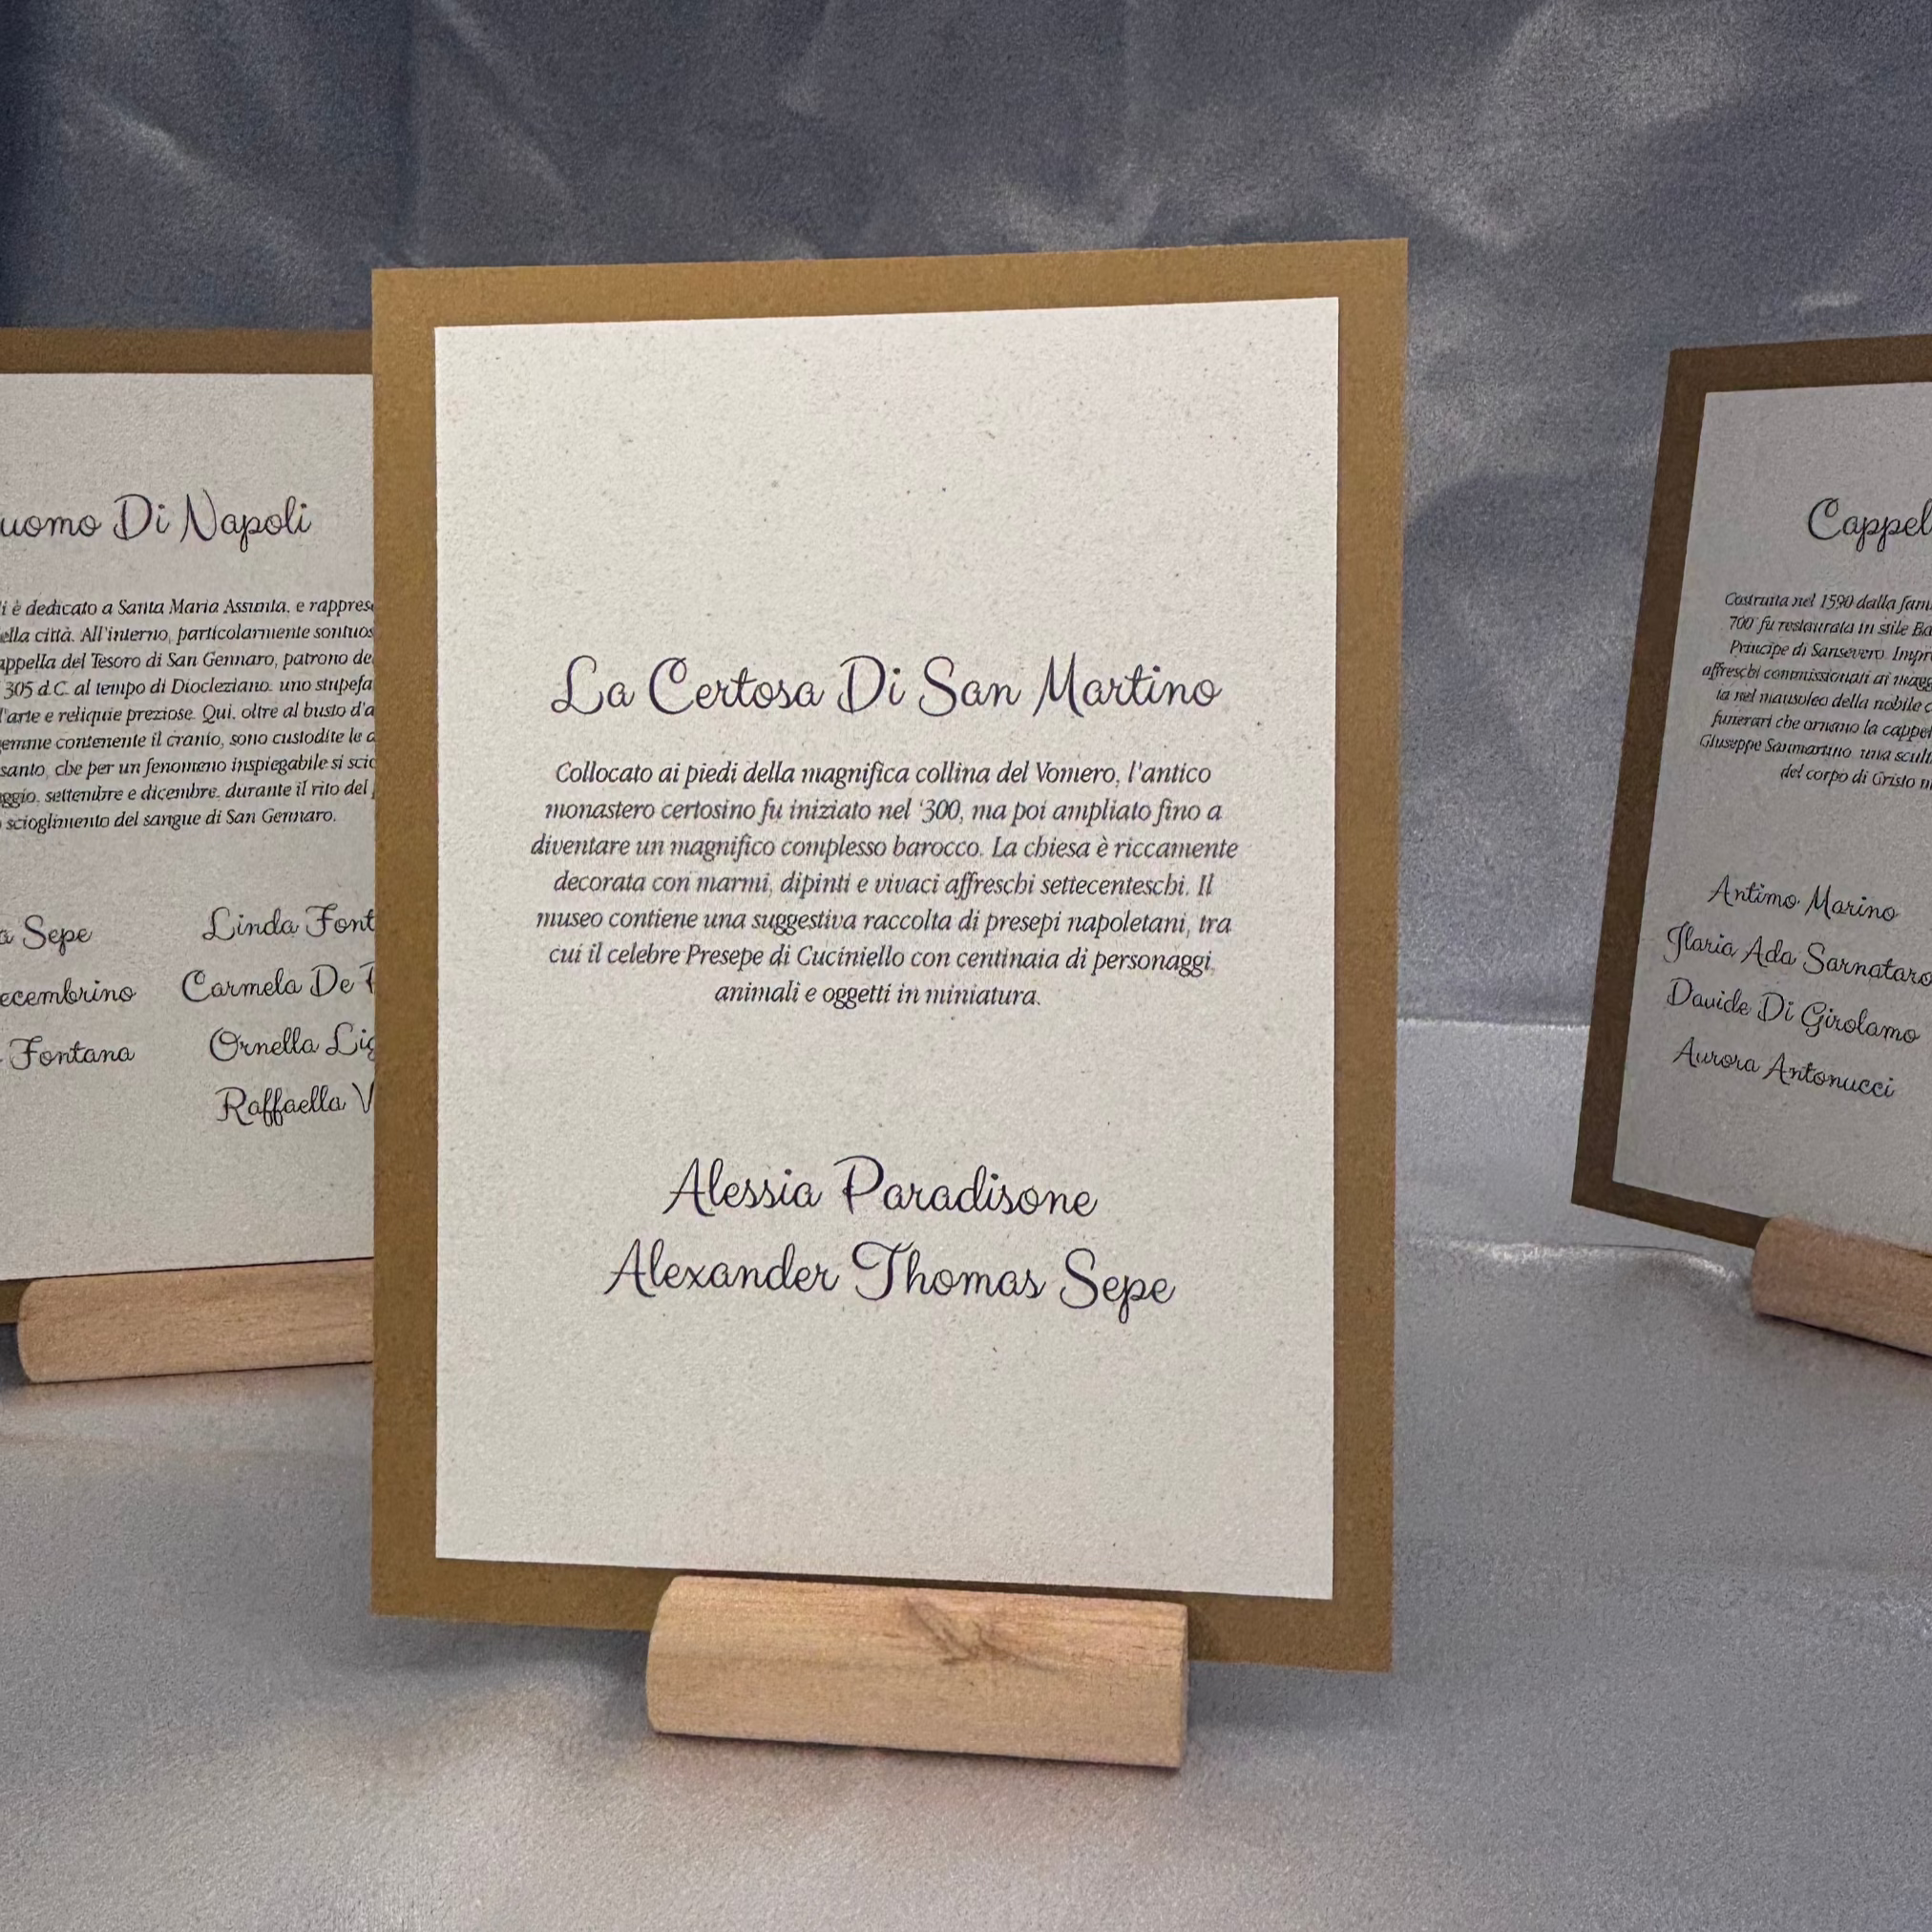 uomo Di Napoli
i è dedicato a Santa Maria Assunta, e
ella città. All'interno, particolarmente
appella del Tesoro di San Gennaro, patrono
305 d.C. al tempo di Diocleziano. uno
l'arte e reliquie preziose. Qui, oltre al busto
gemme contenente il cranio, sono custodite le
santo, che per un fenomeno inspiegabile si
settembre e dicembre, durante il rito del
scioglimento del sangue di San Gennaro.
Sepe
ecembrino
Fontana
Linda
Carmela De
Ornella
Raffaella
La Certosa Di San Martino
Collocato ai piedi della magnifica collina del Vomero, l'antico
monastero certosino fu iniziato nel '300, ma poi ampliato fino a
diventare un magnifico complesso barocco. La chiesa è riccamente
decorata con marmi, dipinti e vivaci affreschi settecenteschi. Il
museo contiene una suggestiva raccolta di presepi napoletani, tra
cui il celebre Presepe di Cuciniello con centinaia di personaggi,
animali e oggetti in miniatura.
Alessia Paradisone
Alexander Thomas Sepe
Cappel
Costruita nel 1590 dalla
700' fu restaurata in stile
Principe di Sansevero.
affreschi commissionati ai
la nel mausoleo della nobile
funerari che ornano la
Giuseppe Sanmartino, una
del corpo di Cristo
Antimo Marino
Ilaria Ada Sarnataro
Davide Di Girolamo
Aurora Antonucci